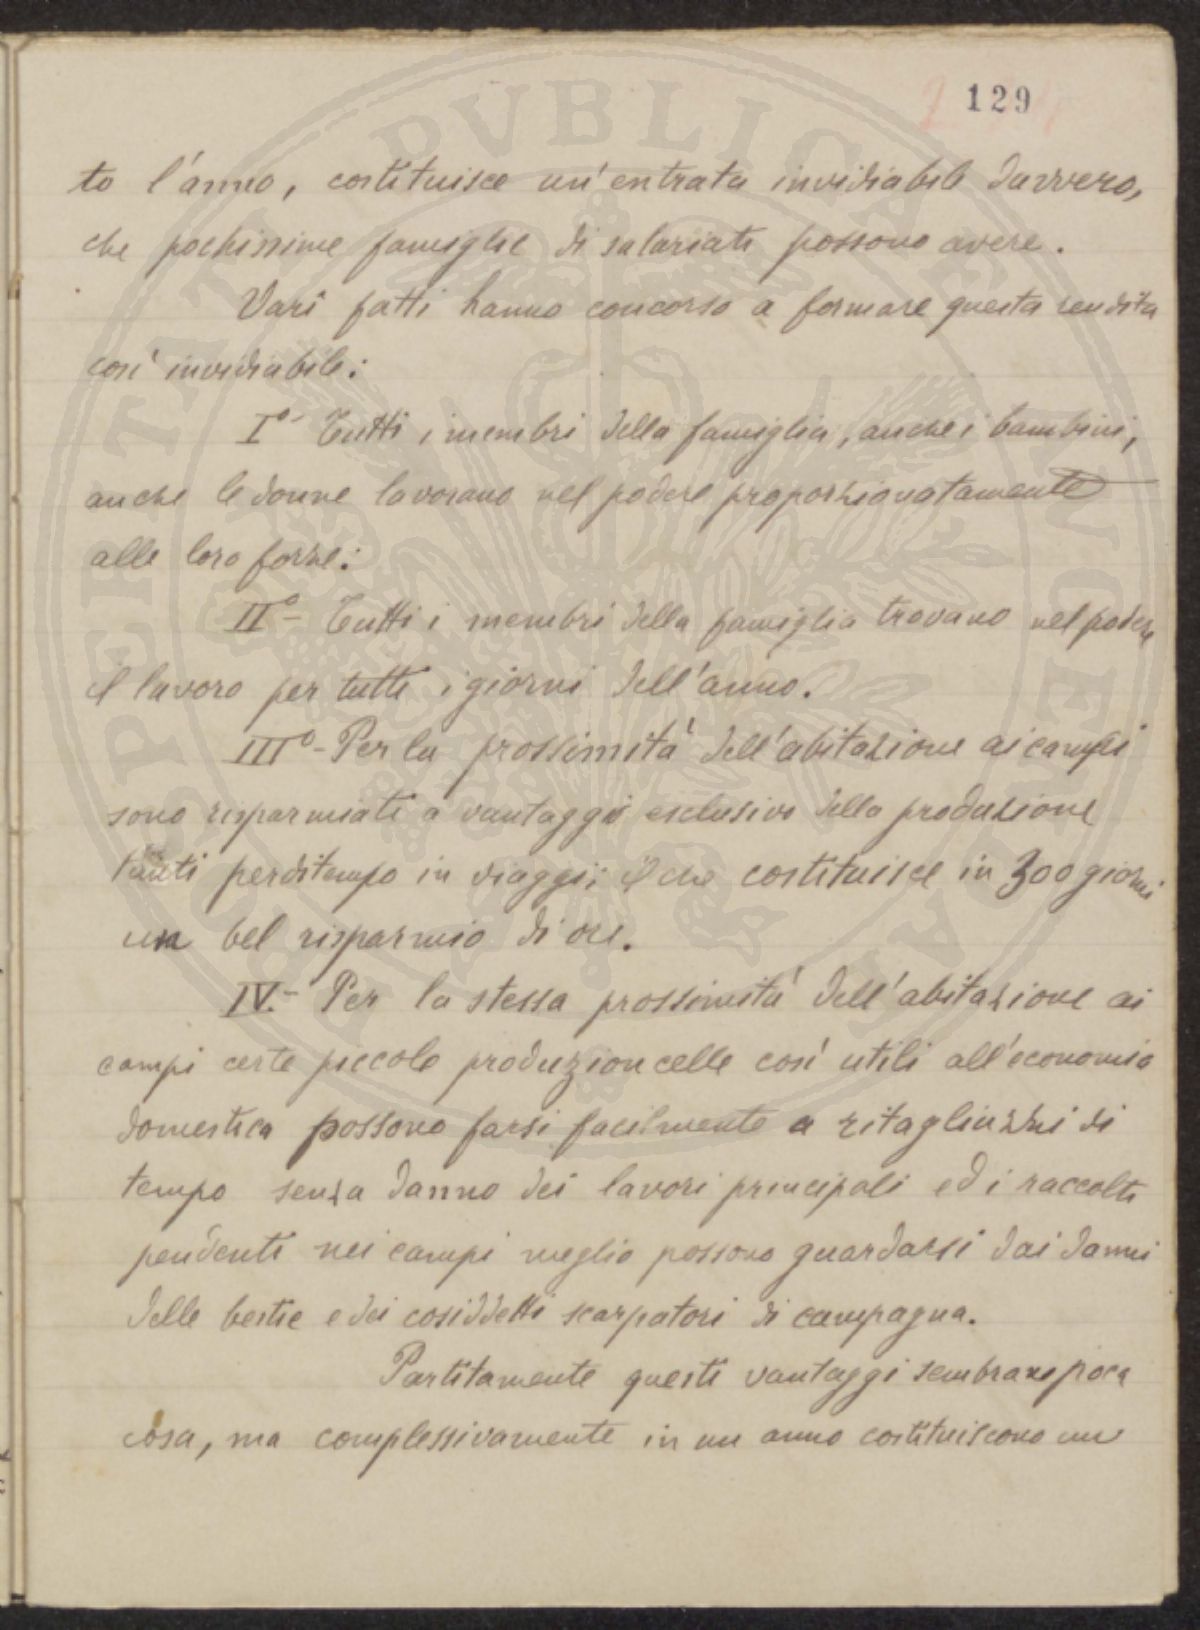 129
to l'anno, costituisce un'entrata invidiabile davvero,
che pochissime famiglie di salariati possono avere.
Vari fatti hanno concorso a formare questa rendita
così invidiabile:
I°- Tutti i membri della famiglia, anche i bambini,
anche le donne lavorano nel podere proporzionatamente
alle loro forze:
II°- Tutti i membri della famiglia trovano nel podere
il lavoro per tutti i giorni dell'anno.
III°- Per la prossimità dell'abitazione ai campi
sono risparmiati a vantaggio esclusivo della produzione
tanti perditempo in viaggi; il che costituisce in 300 giorni
un bel risparmio di ore.
IV.- Per la stessa prossimità dell'abitazione ai
campi certe piccole produzioncelle così utili all'economia
domestica possono farsi facilmente a ritagliuzzi di
tempo senza danno dei lavori principali ed i raccolti
pendenti nei campi meglio possono guardarsi dai danni
delle bestie e dei cosiddetti scarpatori di campagna.
Partitamente questi vantaggi sembrano poca
cosa, ma complessivamente in un anno costituiscono un
HOSPITALITAS PVBLICAE INCREMENTA